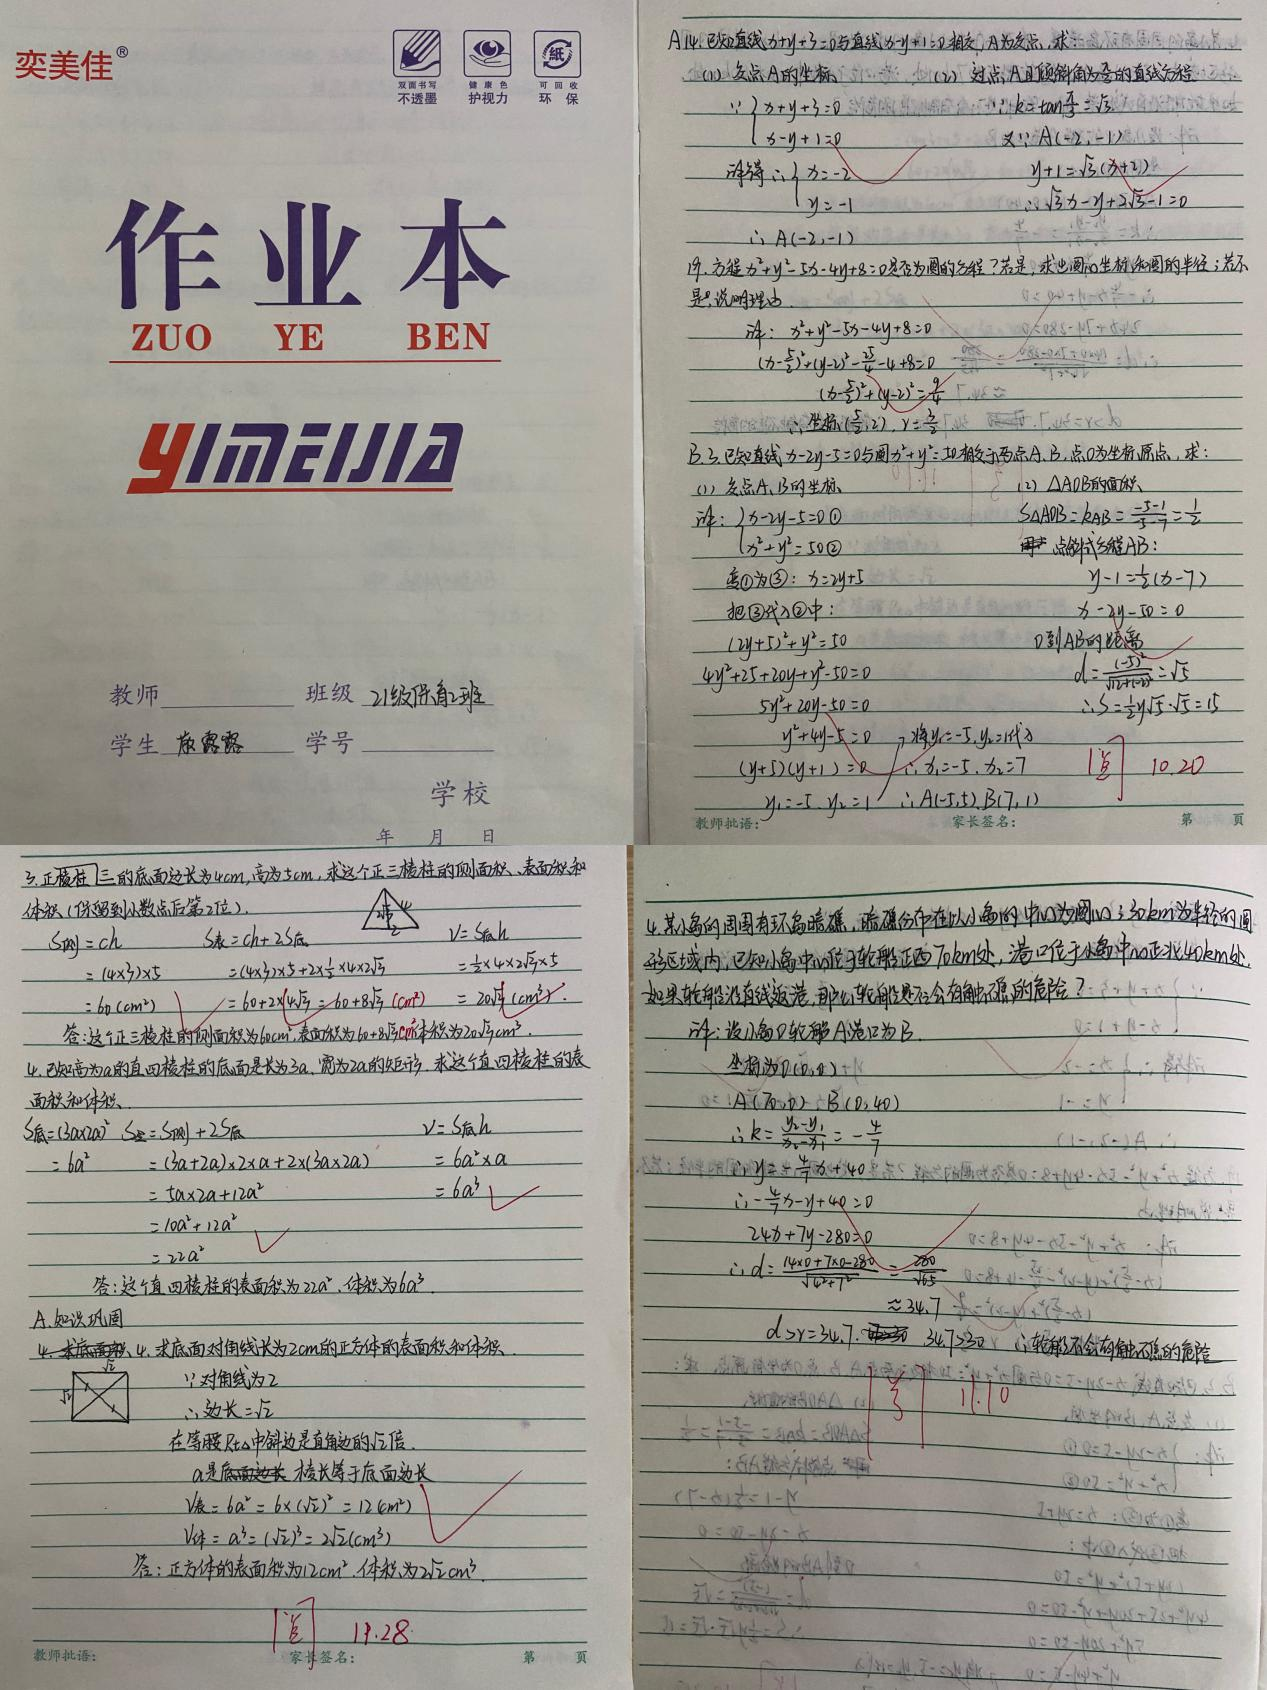 奕美佳®
双面书写 健康色 可回收
不透墨 护视力 环保
作业本
ZUO YE BEN
YIMEIJIA
教师 班级 21级保育2班
学生 露露 学号
学校
年 月 日
A14.已知直线x+y+3=0与直线x-y+1=0相交,A为交点,求:
(1)交点A的坐标. (2)过点A且倾斜角为π/3的直线方程.
∵{x+y+3=0 ∵k=tanπ/3=√3
x-y+1=0 又∵A(-2,-1)
解得∴{x=-2 y+1=√3(x+2)
y=-1 ∴√3x-y+2√3-1=0
∴A(-2,-1)
19.方程x²+y²-5x-4y+8=0是否为圆的方程?若是,求出圆心坐标和圆的半径;若不
是,说明理由.
解:x²+y²-5x-4y+8=0
(x-5/2)²+(y-2)²-25/4-4+8=0
(x-5/2)²+(y-2)²=9/4
∴坐标(5/2,2),r=3/2
B.3.已知直线x-2y-5=0与圆x²+y²=50相交于两点A、B,点O为坐标原点,求:
(1)交点A、B的坐标 (2)△AOB的面积
解:{x-2y-5=0① S△AOB=kAB=-5-1/-5-7=1/2
x²+y²=50② 点斜式方程AB:
变①为③:x=2y+5 y-1=1/2(x-7)
把③代入②中: x-2y-50=0
(2y+5)²+y²=50 O到AB的距离
4y²+25+20y+y²-50=0 d=(-5)²/√(2+(-2)²)=√5
5y²+20y-50=0 ∴S=1/2y√5·√5=15
y²+4y-5=0 将y₁=-5,y₂=1代入
(y+5)(y+1)=0 ∴x₁=-5,x₂=7
y₁=-5,y₂=1 ∴A(-5,5),B(7,1)
10.20
教师批语: 家长签名: 第 页
3.正棱柱三的底面边长为4cm,高为5cm,求这个正三棱柱的侧面积、表面积和
体积(保留到小数点后第2位).
4
2
S侧=ch S表=ch+2S底 V=S底h
=(4×3)×5 =(4×3)×5+2×1/2×4×2√3 =1/2×4×2√3×5
=60(cm²) =60+2×4√3=60+8√3(cm²) =20√3(cm³).
答:这个正三棱柱的侧面积为60cm²,表面积为60+8√3cm²体积为20√3cm³.
4.已知高为a的直四棱柱的底面是长为3a、宽为2a的矩形,求这个直四棱柱的表
面积和体积.
S底=(3a×2a)² S表=S侧+2S底 V=S底h
=6a² =(3a+2a)×2×a+2×(3a×2a) =6a²×a
=5a×2a+12a² =6a³
=10a²+12a²
=22a²
答:这个直四棱柱的表面积为22a²,体积为6a³
A.知识巩固
4.求底面积 4.求底面对角线长为2cm的正方体的表面积和体积.
√2
√2
∵对角线为2
∴边长=√2
在等腰Rt△中斜边是直角边的√2倍.
a是底面边长 棱长等于底面边长
V表=6a²=6×(√2)²=12(cm²)
V体=a³=(√2)³=2√2(cm³)
答:正方体的表面积为12cm²,体积为2√2cm³.
11.28
教师批语: 家长签名: 第 页
4.某小岛的周围有环岛暗礁,暗礁分布在以小岛的中心为圆心;30km为半径的圆
形区域内,已知小岛中心位于轮船正西70km处,港口位于小岛中心正北40km处.
如果轮船沿直线返港,那么轮船是否会有触礁的危险?
解:设小岛O轮船A港口为B.
坐标为O(0,0)
A(70,0),B(0,40)
∴k=y₂-y₁/x₂-x₁=-4/7
∴y=-4/7x+40
∴-4/7x-y+40=0
24x+7y-280=0
∴d=14×0+7×0-280/√(4²+7²)=280/√65
≈34.7
d>r=34.7. 34.7>30 ∴轮船不会有触礁的危险
11.10